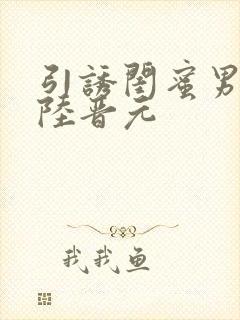 引誘閨蜜男
陸晋元
我我鱼